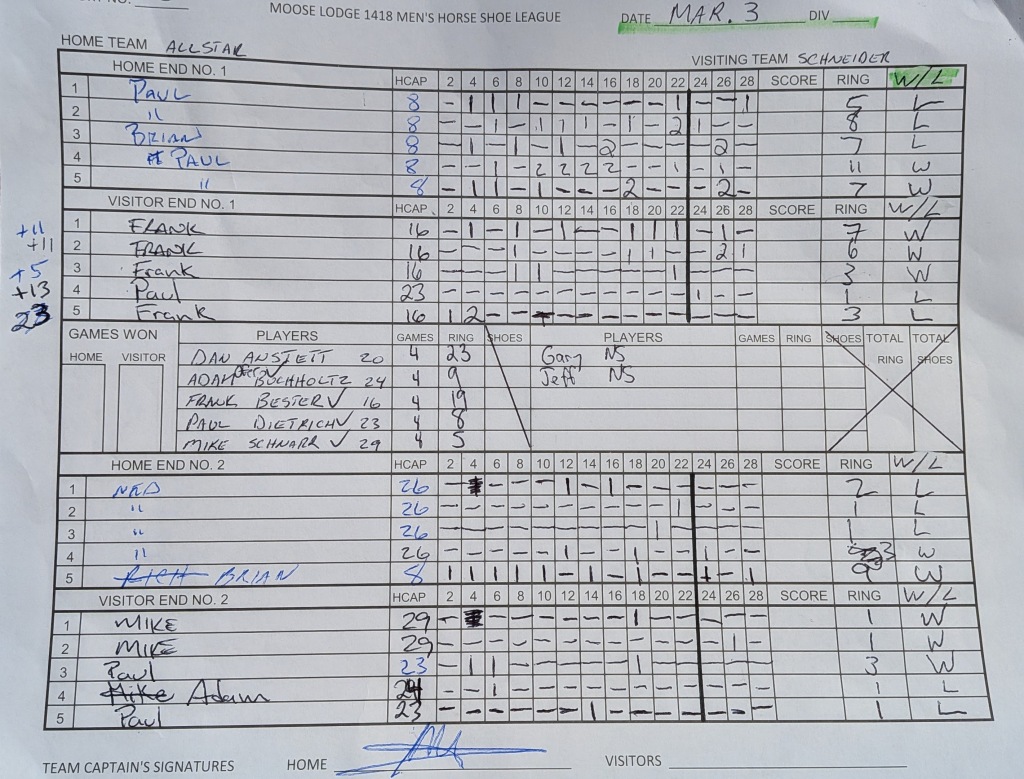 MOOSE LODGE 1418 MEN'S HORSE SHOE LEAGUE
DATE MAR. 3 DIV
HOME TEAM ALLSTAR
VISITING TEAM SCHNEIDER
HOME END NO. 1 HCAP 2 4 6 8 10 12 14 16 18 20 22 24 26 28 SCORE RING W/L
1 PAUL 8 - 1 1 1 - - - - - - 1 - - 1 5 L
2 " 8 - - 1 - 1 1 1 - 1 - 2 1 - - 8 L
3 BRIAN 8 - 1 - 1 - 1 - 2 - - - - 2 - 7 L
4 PAUL 8 - - 1 - 2 2 2 2 - - 1 - 1 - 11 W
5 " 8 - 1 1 - 1 - - - 2 - - - 2 - 7 W
VISITOR END NO. 1 HCAP 2 4 6 8 10 12 14 16 18 20 22 24 26 28 SCORE RING W/L
+11 1 FRANK 16 - 1 - 1 - 1 - - 1 1 1 - 1 - 7 W
+11 2 FRANK 16 - - - 1 - - - - 1 1 - - 2 1 6 W
+5 3 Frank 16 - - - 1 1 - - - - - 1 - - - 3 W
+13 4 Paul 23 - - - - - - - - - - - 1 - - 1 L
23 5 Frank 16 1 2 - - - - - - - - - - - - 3 L
GAMES WON PLAYERS GAMES RING SHOES PLAYERS GAMES RING SHOES TOTAL RING TOTAL SHOES
HOME VISITOR
DAN ANSTETT 20 4 23 Gary NS
ADAM BUCHHOLTZ 24 4 9 Jeff NS
FRANK BESTER √ 16 4 19
PAUL DIETRICH √ 23 4 8
MIKE SCHNARR √ 29 4 5
HOME END NO. 2 HCAP 2 4 6 8 10 12 14 16 18 20 22 24 26 28 SCORE RING W/L
1 NED 26 - - - - 1 - 1 - - - - - - 2 L
2 " 26 - - - - - - - - - - 1 - - - 1 L
3 " 26 - - - - - - - - - 1 - - - - 1 L
4 " 26 - - - - - 1 - - 1 - - 1 - - 3 W
5 RICH BRIAN 8 1 1 1 1 1 - 1 - 1 - - 1 - 1 9 W
VISITOR END NO. 2 HCAP 2 4 6 8 10 12 14 16 18 20 22 24 26 28 SCORE RING W/L
1 MIKE 29 - - - - - - - 1 - - - - - 1 W
2 MIKE 29 - - - - - - - - - - - - 1 - 1 W
3 Paul 23 - 1 1 - - - - - 1 - - - - - 3 W
4 Mike Adam 24 - - 1 - - - - - - - - - - - 1 L
5 Paul 23 - - - - - - 1 - - - - - - - 1 L
TEAM CAPTAIN'S SIGNATURES HOME VISITORS